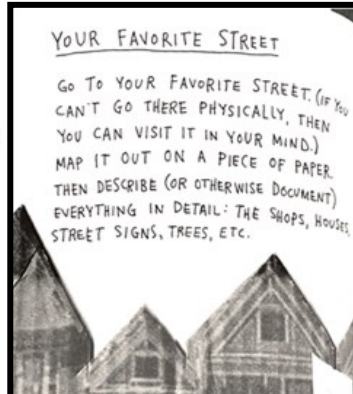 YOUR FAVORITE STREET
GO TO YOUR FAVORITE STREET. (IF YOU
CAN'T GO THERE PHYSICALLY, THEN
YOU CAN VISIT IT IN YOUR MIND.)
MAP IT OUT ON A PIECE OF PAPER.
THEN DESCRIBE (OR OTHERWISE DOCUMENT)
EVERYTHING IN DETAIL: THE SHOPS, HOUSES,
STREET SIGNS, TREES, ETC.